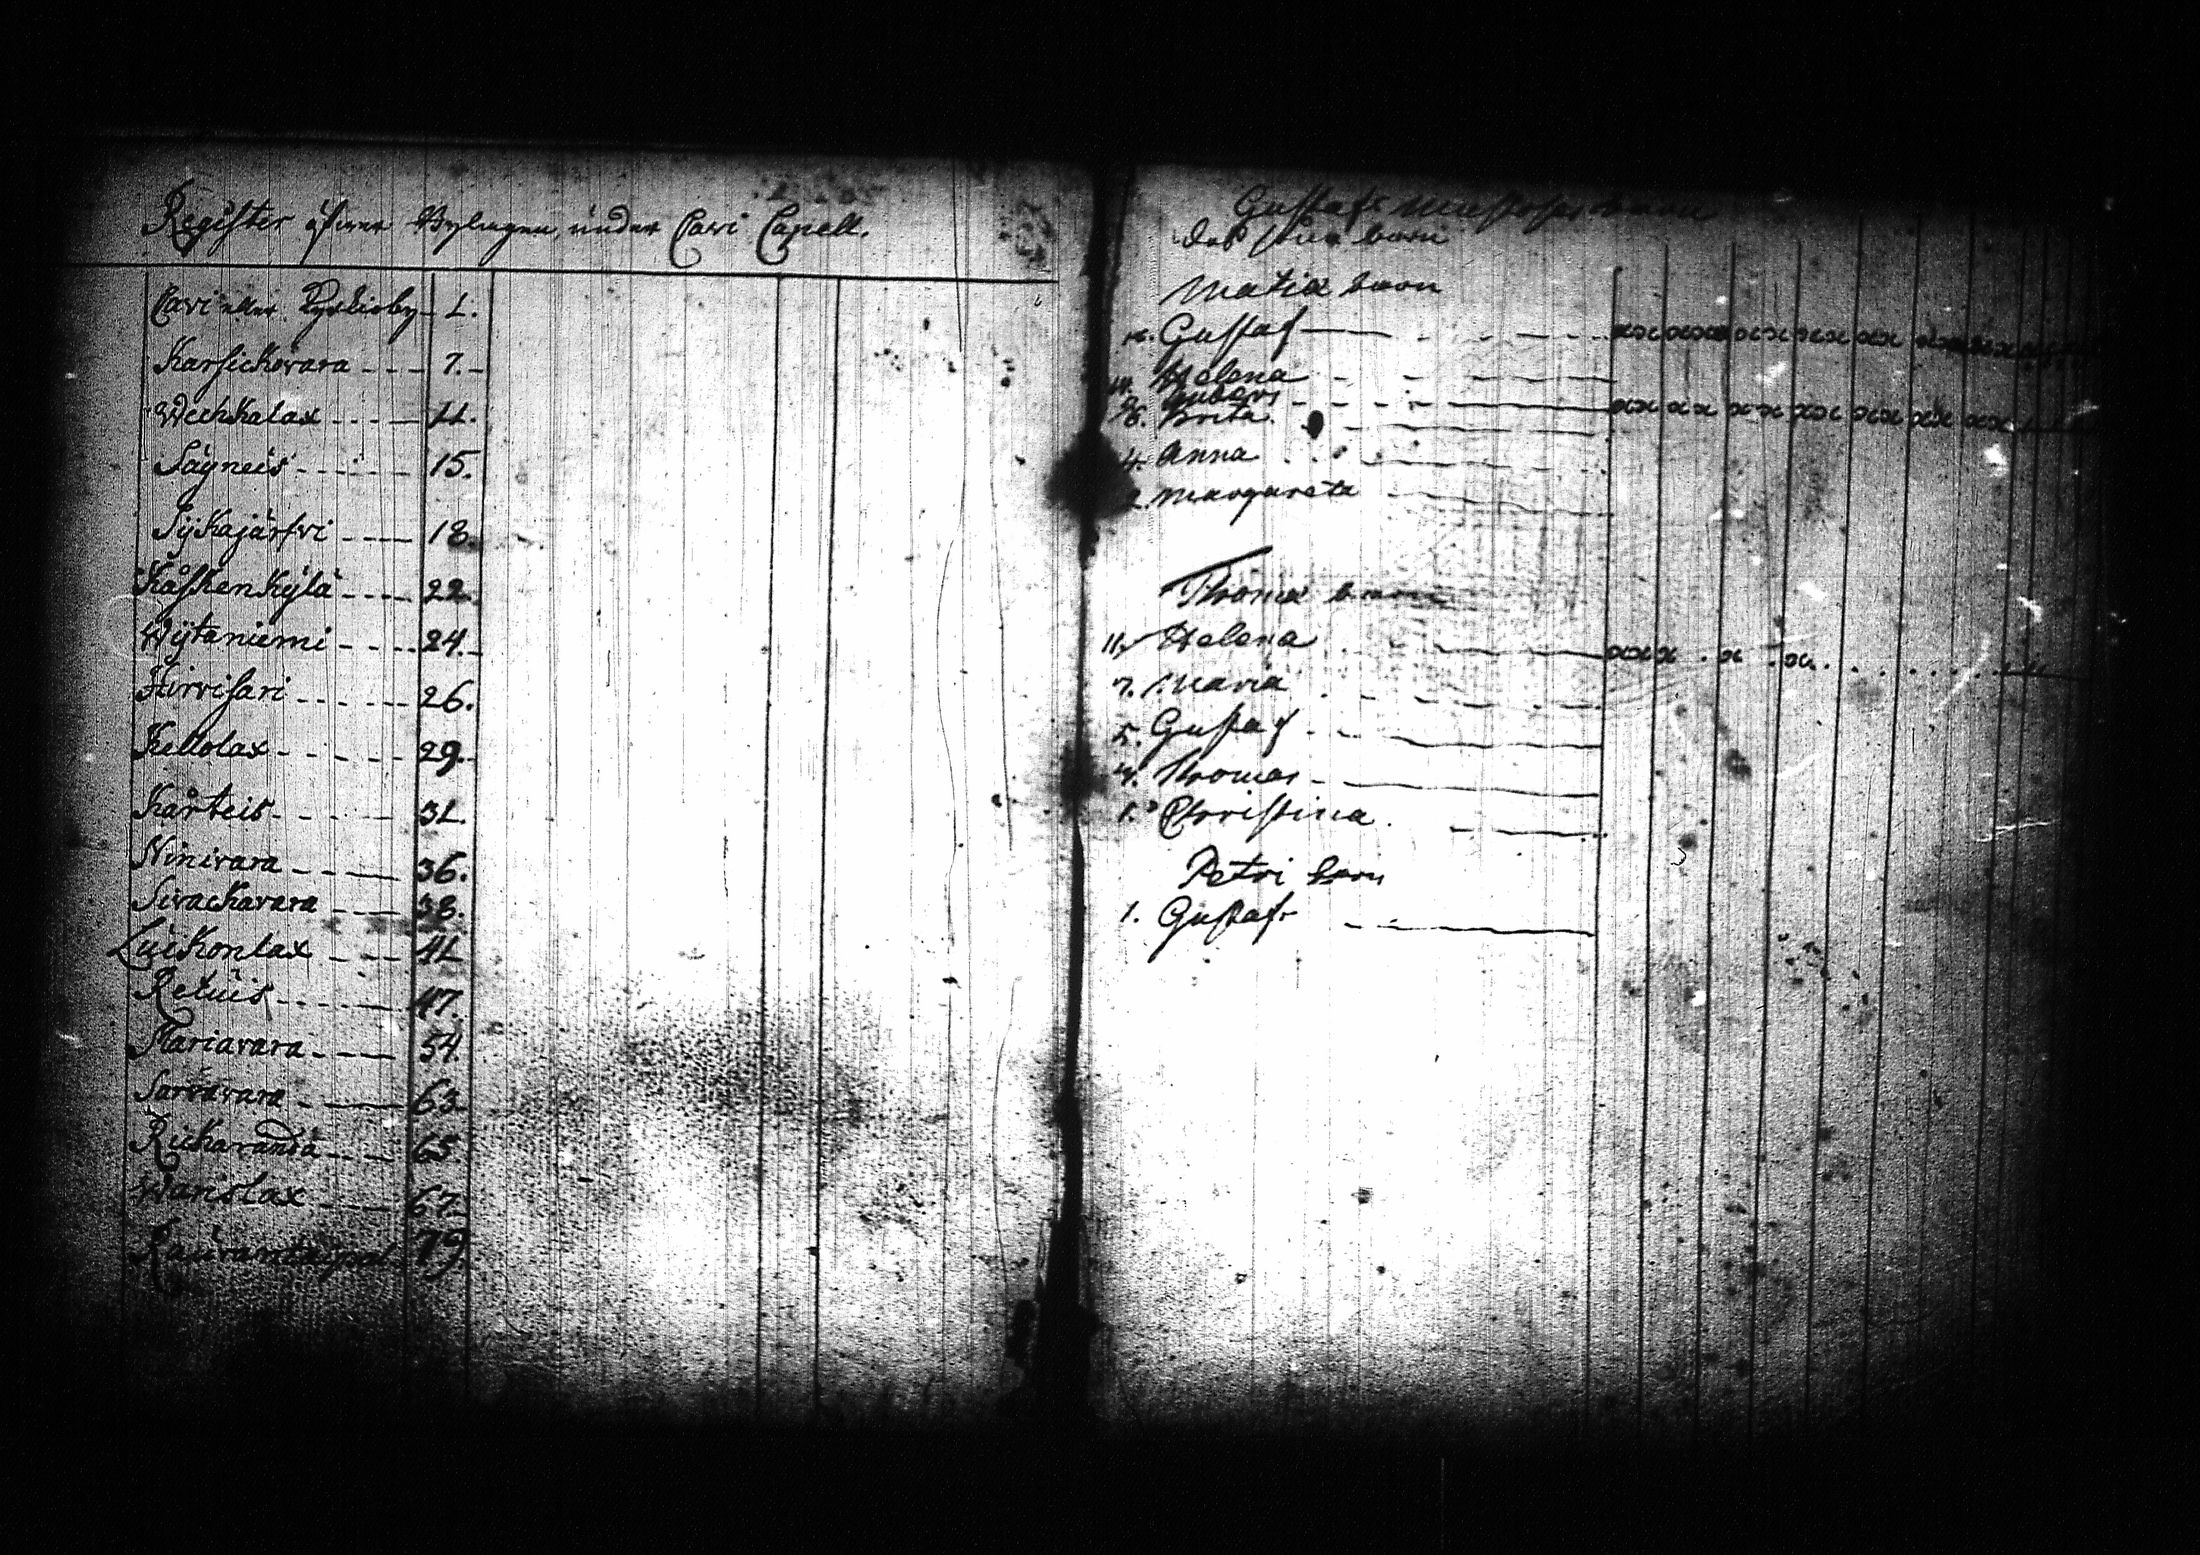 Register öfwer Bylagen, under Cavi Capell.
Cavi eller Kyrkioby 1.
Karsickovara - - - 7.
Wechkalax - - - 11.
Säyneis - - - - 15.
Sijkajärfvi - - - 18.
Kåskenkÿlä - - - 22.
Wÿtaniemi - - - - 24.
Hirvisari - - - - 26.
Kellolax - - - - 29.
Kårteis - - - - 31.
Ninivara - - - 36.
Sivackavara - - - 38.
Luikonlax - - - 41
Retuis - - - - 47.
Mariavara - - - 54.
Sarvavara - - - 63.
Rickaranda - - - 65.
Warislax - - - 67.
79
Gustafs barn
barn
Matia barn
Gustaf
Helena
Brita.
4. Anna
2. Margareta
Thomæ barn
11. Helena
7. Maria
5. Gustaf
4. Thomas
1. Christina.
Petri barn
1. Gustaf